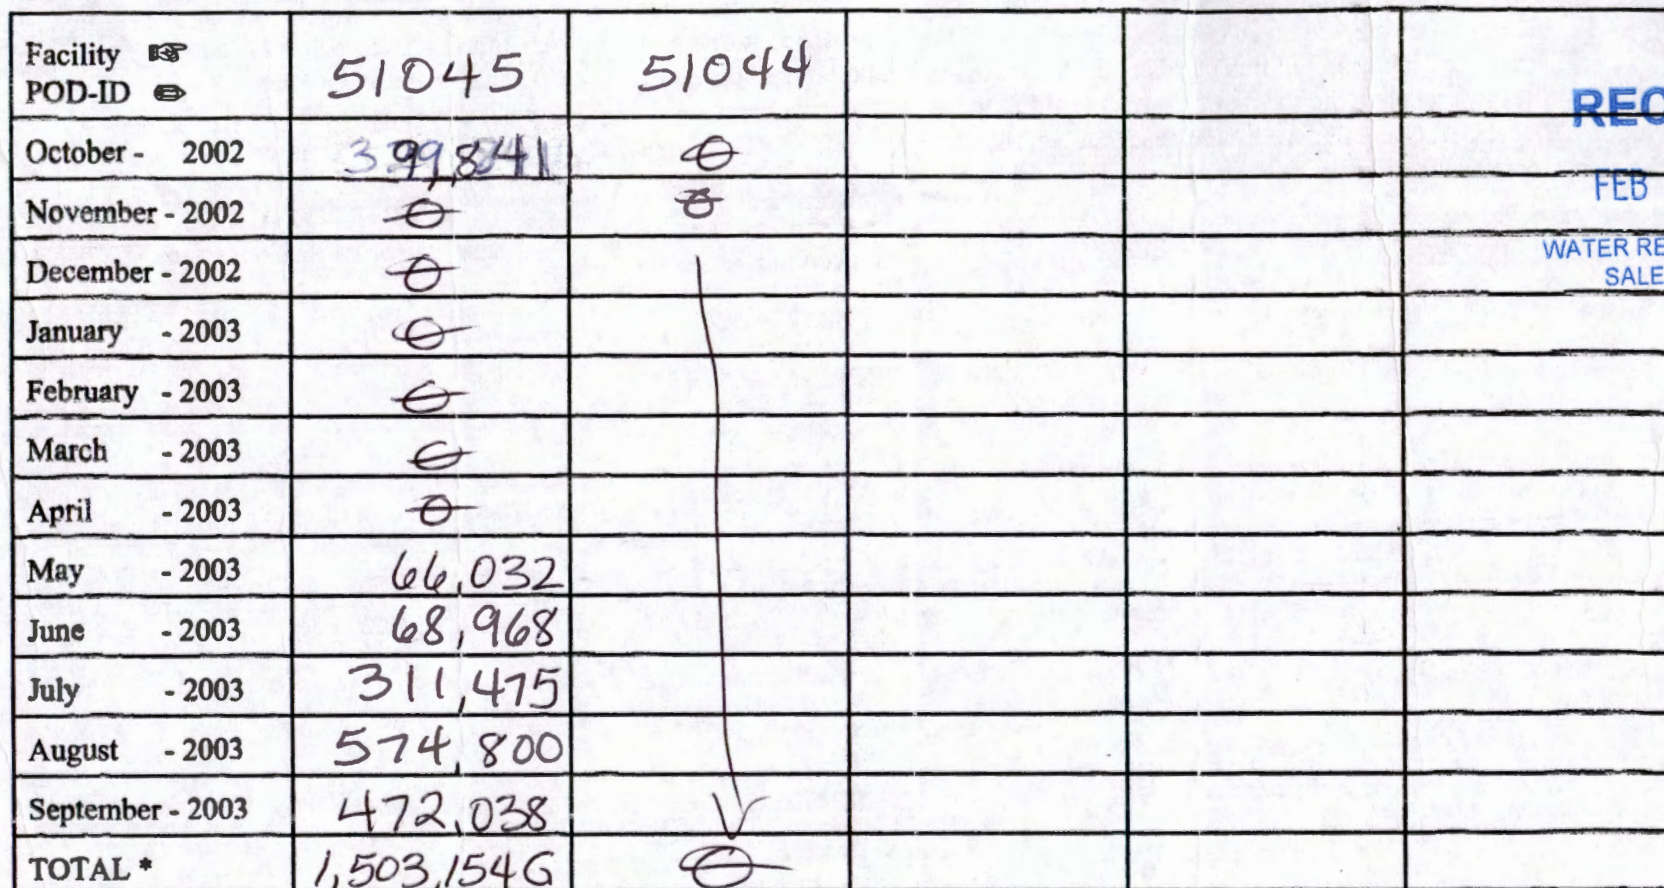 Facility
POD-ID
51045 51044
REC
October - 2002 0
FEB
November - 2002 0 0
December - 2002 0
WATER RE
SALE
January - 2003 0
February - 2003 0
March - 2003 0
April - 2003 0
May - 2003 66,032
June - 2003 68,968
July - 2003 311,475
August - 2003 574,800
September - 2003 472,038
TOTAL * 1,503,154G 0